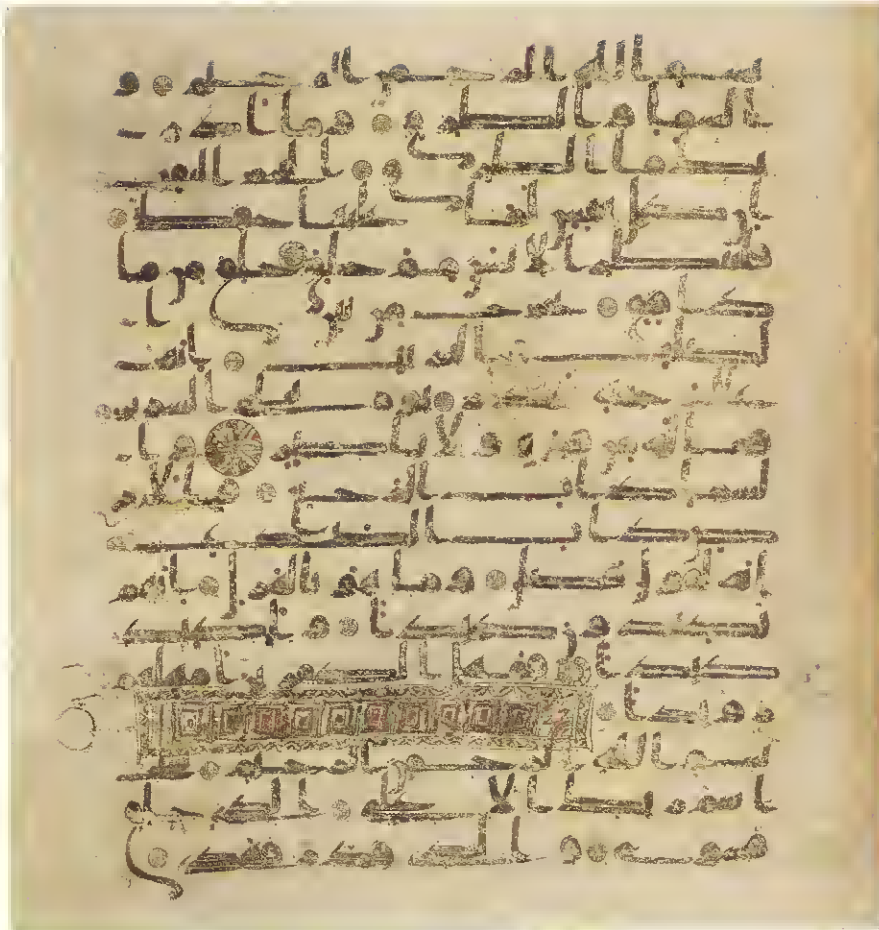 بسم الله الرحمن الرحيم و
السما والطارق وما ادر
يك ما الطارق النجم الثقب
ان كل نفس لما عليها حافظ
فلينظر الانسن مم خلق خلق من ما
دافق يخرج من بين ا
لصلب والترايب انه
على رجعه لقادر يوم تبلى السراير
فما له من قوة ولا ناصر وا
لسما ذات الرجع والار
ض ذات الصدع
انه لقول فصل وما هو بالهزل انهم
يكيدون كيدا واكيد
كيدا فمهل الكفرين امهلهم
رويدا
بسم الله الرحمن الرحيم سبح
اسم ربك الاعلى الذي خلق
فسوى والذي قدر فهدى